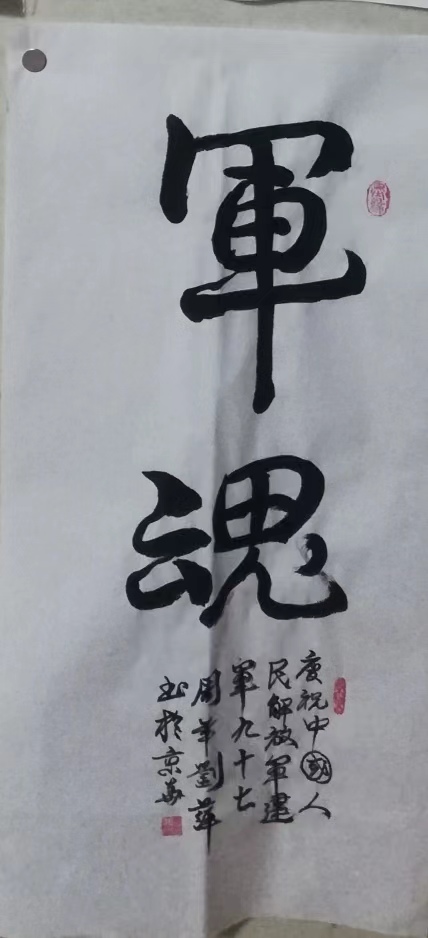 軍魂
慶祝中國人
民解放軍建
軍九十七
周年劉萍
书於京華